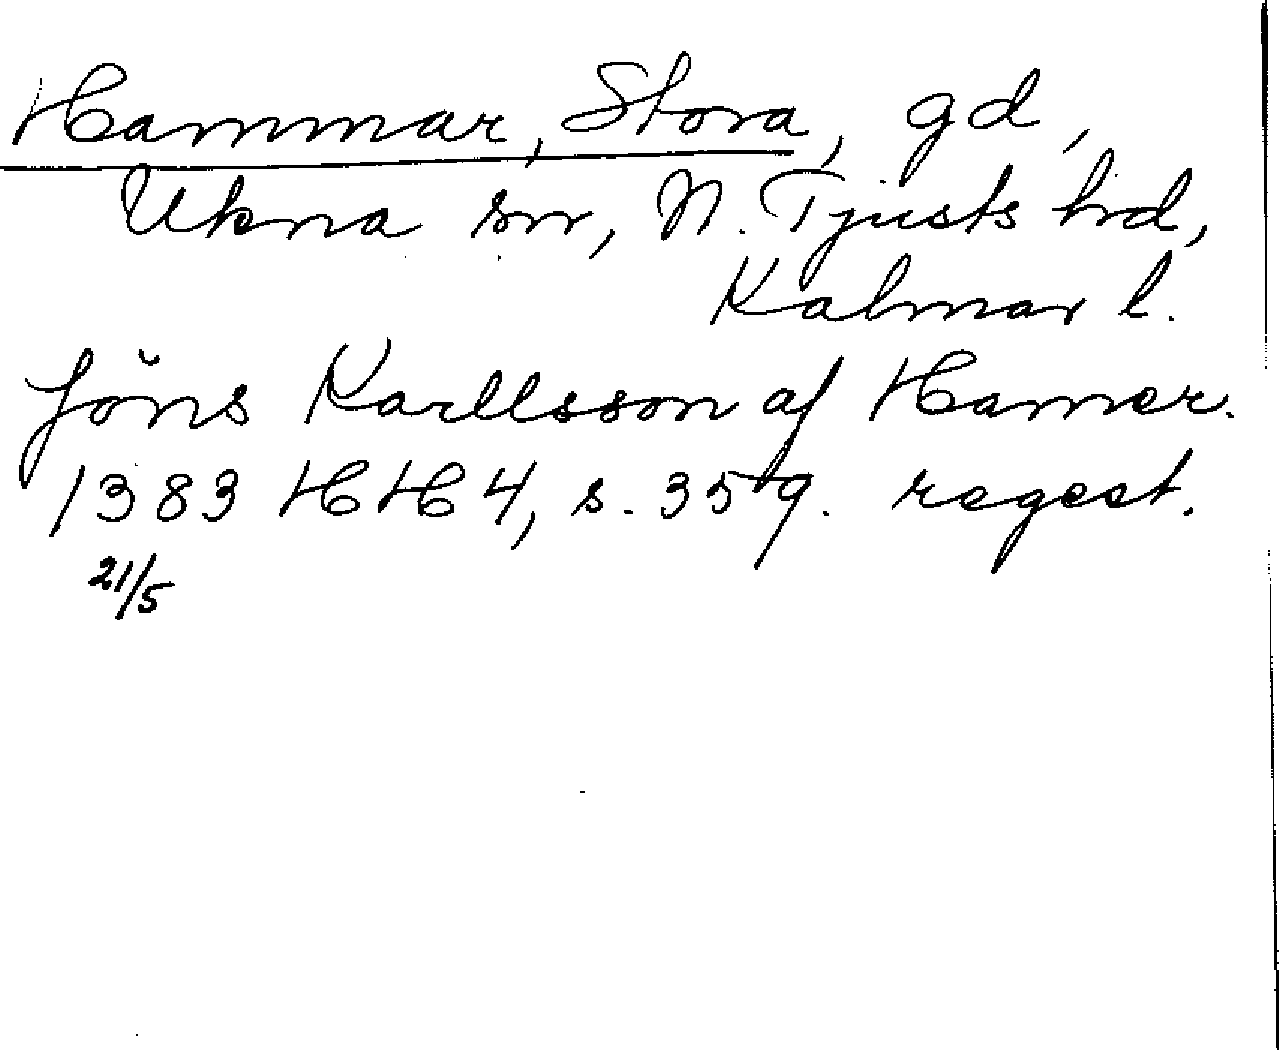 Hammar, Stora, gd,
Ukna sn, N. Tjusts hd,
Kalmar l.
Jöns Karllsson af Hamer.
1383 HH 4, s. 359. regest.
21/5